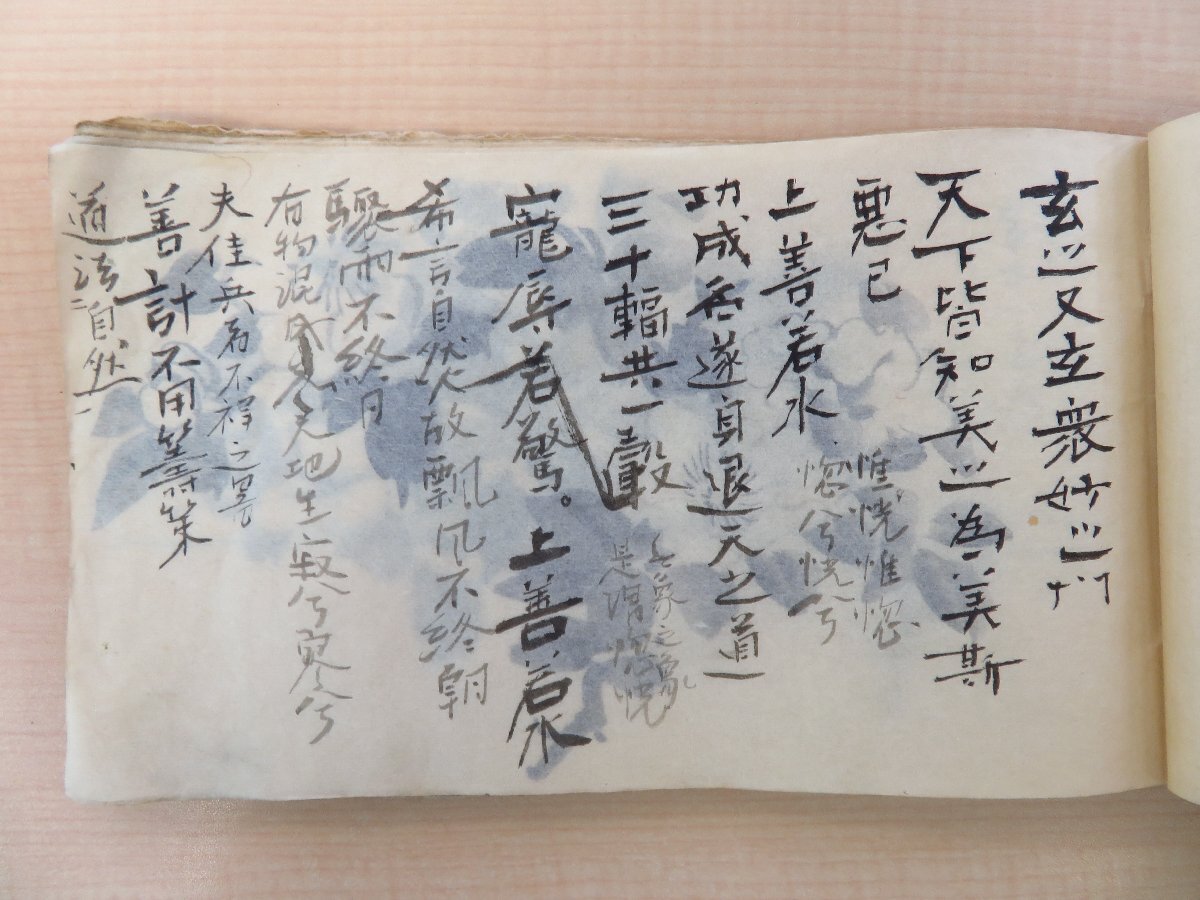 玄之又玄衆妙之門
天下皆知美之為美斯
悪已
惟恍惟惚
惚兮恍兮
上善若水
功成名遂身退天之道
三十輻共一轂
無象之象
是謂惚恍
寵辱若驚。上善若水
希言自然故飄風不終朝
驟雨不終日
有物混成先天地生寂兮寞兮
夫佳兵者不祥之器
善計不用籌策
道法自然